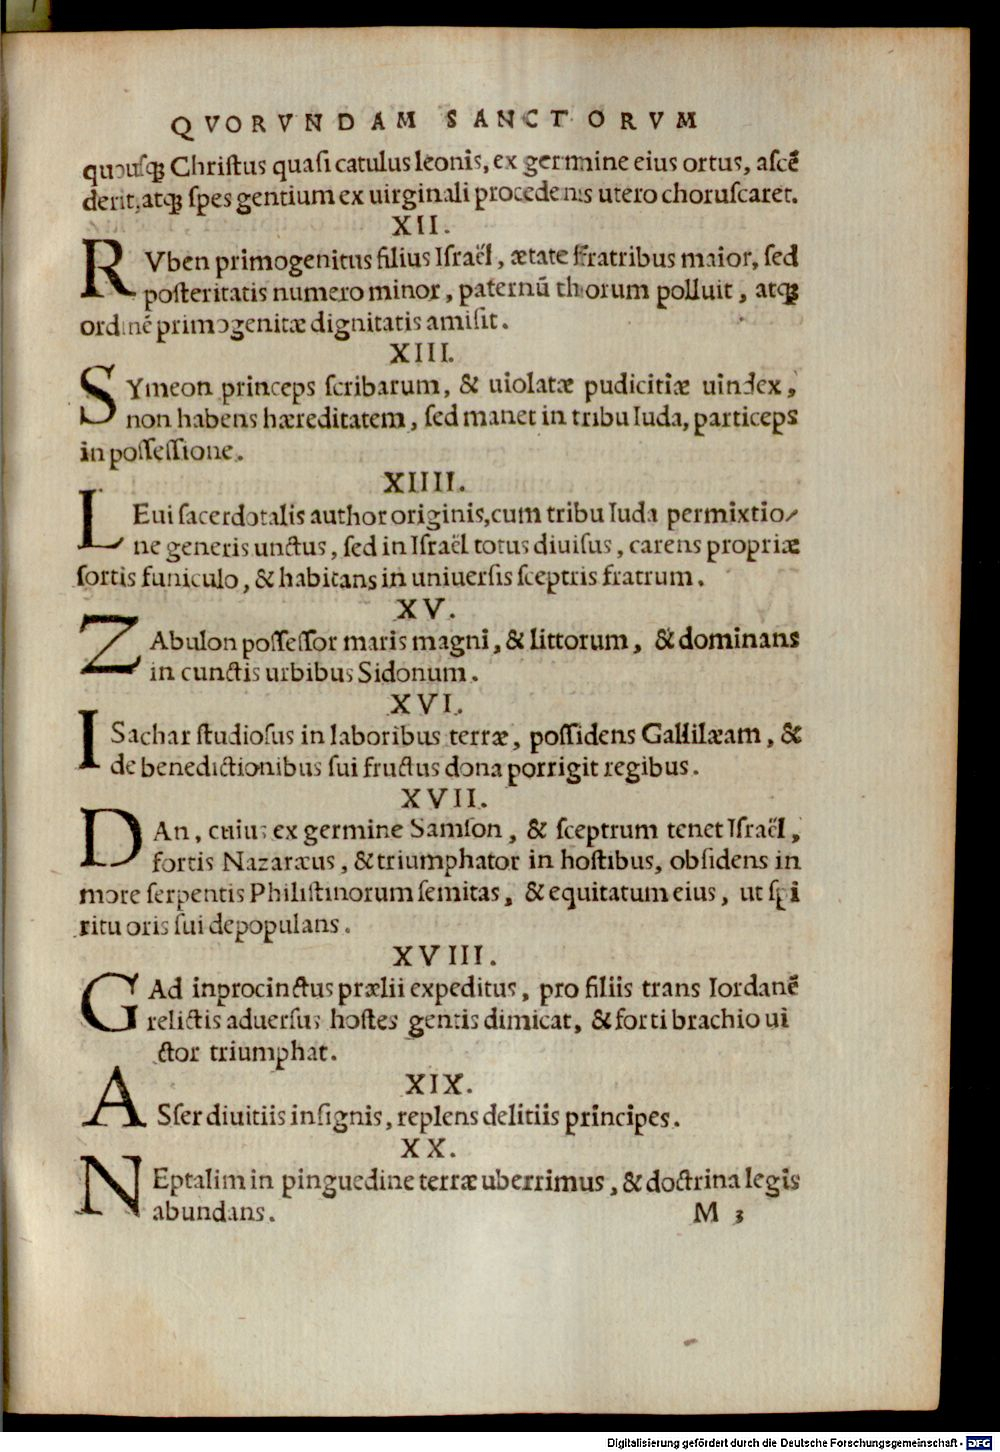 QVORVNDAM SANCTORVM
quousq; Christus quasi catulus leonis, ex germine eius ortus, ascē
derit, atq; spes gentium ex uirginali procedens utero choruscaret.
XII.
RVben primogenitus filius Israël, ætate fratribus maior, sed
posteritatis numero minor, paternū thorum polluit, atq;
ordinē primogenitæ dignitatis amisit.
XIII.
SYmeon princeps scribarum, & uiolatæ pudicitiæ uindex,
non habens hæreditatem, sed manet in tribu Iuda, particeps
in possessione.
XIIII.
LEui sacerdotalis author originis, cum tribu Iuda permixtio-
ne generis unctus, sed in Israël totus diuisus, carens propriæ
sortis funiculo, & habitans in uniuersis sceptris fratrum.
XV.
ZAbulon possessor maris magni, & littorum, & dominans
in cunctis urbibus Sidonum.
XVI.
ISachar studiosus in laboribus terræ, possidens Gallilæam, &
de benedictionibus sui fructus dona porrigit regibus.
XVII.
DAn, cuius ex germine Samson, & sceptrum tenet Israël,
fortis Nazaræus, & triumphator in hostibus, obsidens in
more serpentis Philistinorum semitas, & equitatum eius, ut spi
ritu oris sui depopulans.
XVIII.
GAd inprocinctus prælii expeditus, pro filiis trans Iordanē
relictis aduersus hostes gentis dimicat, & forti brachio ui
ctor triumphat.
XIX.
ASser diuitiis insignis, replens delitiis principes.
XX.
NEptalim in pinguedine terræ uberrimus, & doctrina legis
abundans.
M 3
Digitalisierung gefördert durch die Deutsche Forschungsgemeinschaft - DFG